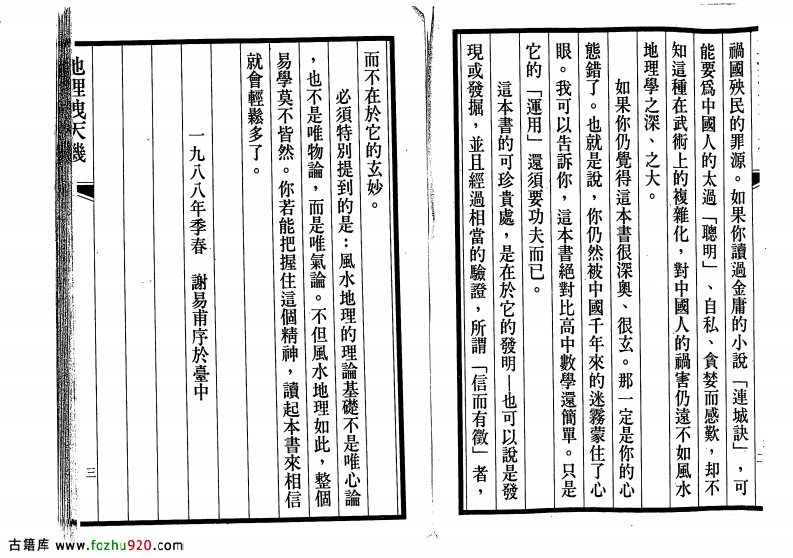 禍國殃民的罪源。如果你讀過金庸的小說「連城訣」，可
能要爲中國人的太過「聰明」、自私、貪婪而感歎，却不
知這種在武術上的複雜化，對中國人的禍害仍遠不如風水
地理學之深、之大。
如果你仍覺得這本書很深奧、很玄。那一定是你的心
態錯了。也就是說，你仍然被中國千年來的迷霧蒙住了心
眼。我可以告訴你，這本書絕對比高中數學還簡單。只是
它的「運用」還須要功夫而已。
這本書的可珍貴處，是在於它的發明—也可以說是發
現或發掘，並且經過相當的驗證，所謂「信而有徵」者，
而不在於它的玄妙。
必須特別提到的是：風水地理的理論基礎不是唯心論
，也不是唯物論，而是唯氣論。不但風水地理如此，整個
易學莫不皆然。你若能把握住這個精神，讀起本書來相信
就會輕鬆多了。
一九八八年季春　謝易甫序於臺中
地理洩天機
三
古籍库 www.fozhu920.com